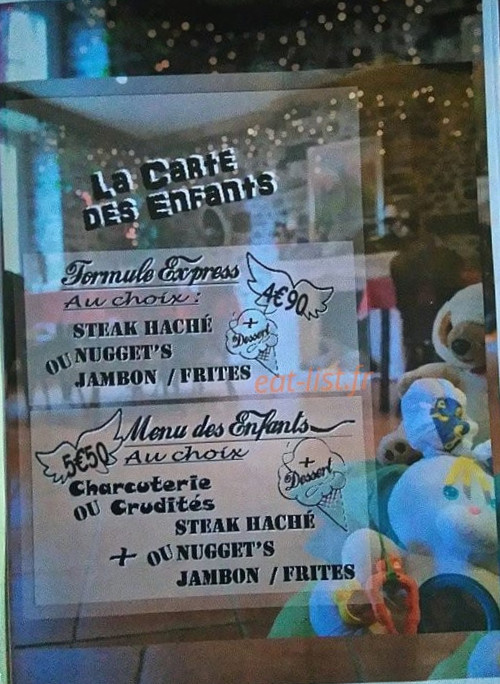 La Carte
des Enfants
Formule Express
4€90
Au choix :
STEAK HACHÉ
OU NUGGET'S
JAMBON / FRITES
+
Dessert
eat-list.fr
Menu des Enfants
5€50
Au choix
Charcuterie
OU Crudités
+
Dessert
STEAK HACHÉ
+ OU NUGGET'S
JAMBON / FRITES